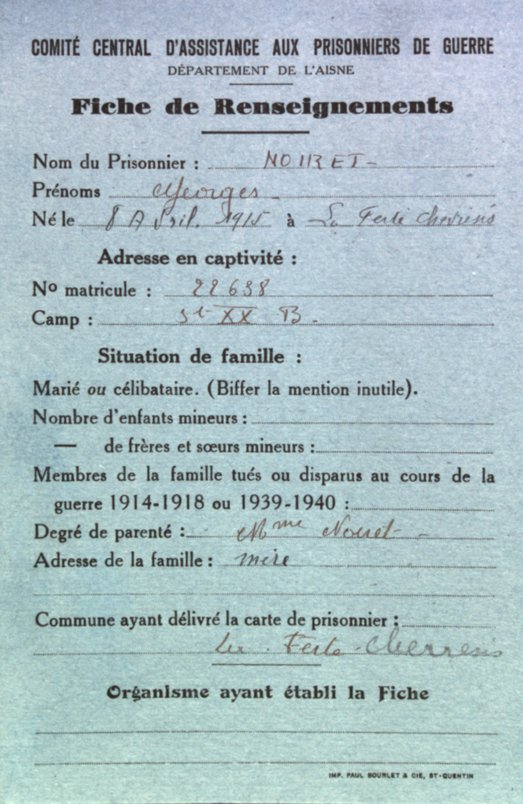 COMITÉ CENTRAL D'ASSISTANCE AUX PRISONNIERS DE GUERRE
DÉPARTEMENT DE L'AISNE
Fiche de Renseignements
Nom du Prisonnier : NOIRET
Prénoms Georges
Né le 8 Avril 1915 à La Ferté Chevresis
Adresse en captivité :
No matricule : 22638
Camp : St XX B
Situation de famille :
Marié ou célibataire. (Biffer la mention inutile).
Nombre d'enfants mineurs :
— de frères et sœurs mineurs :
Membres de la famille tués ou disparus au cours de la
guerre 1914-1918 ou 1939-1940 :
Degré de parenté : Mme Noiret
Adresse de la famille : mère
Commune ayant délivré la carte de prisonnier :
La Ferte-Chevresis
Organisme ayant établi la Fiche
IMP. PAUL BOURLET & CIE, ST-QUENTIN